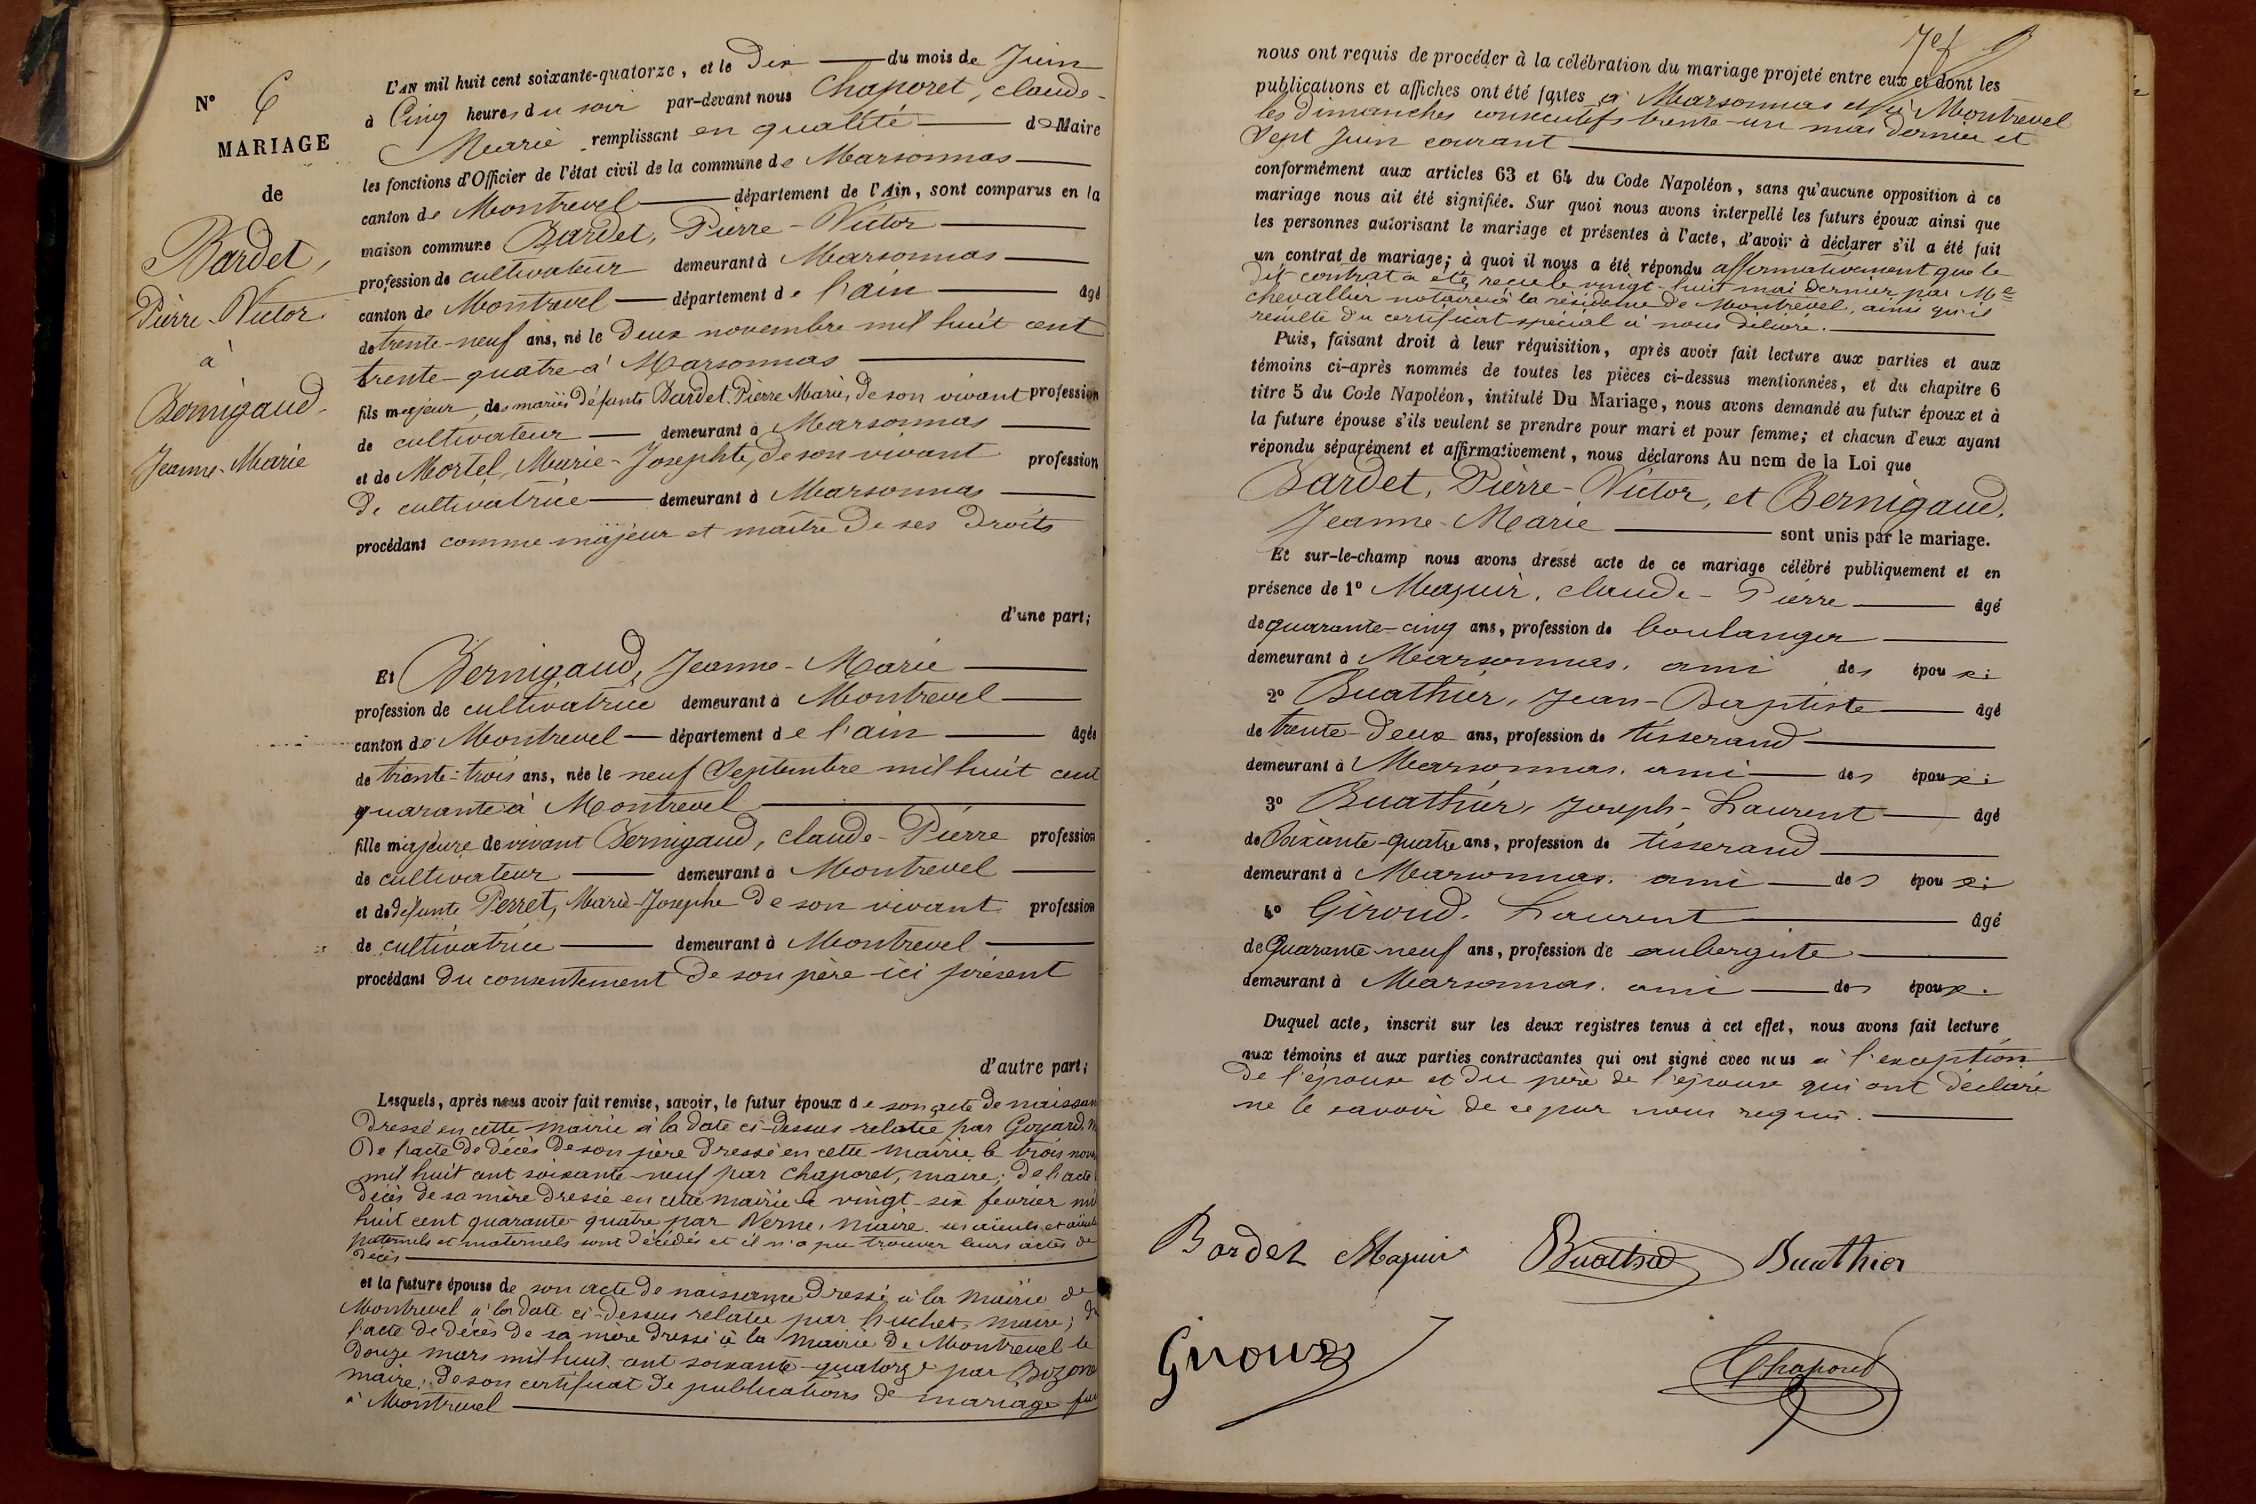 N° 6
MARIAGE
de
Bardet,
Pierre-Victor
à
Bernigaud
Jeanne-Marie
L'AN mil huit cent soixante-quatorze, et le Dix du mois de Juin
à Cinq heures du soir par-devant nous Chaporet, Claude-
Marie remplissant en qualité de Maire
les fonctions d'Officier de l'état civil de la commune de Marsonnas
canton de Montrevel département de l'Ain, sont comparus en la
maison commune Bardet, Pierre-Victor
profession de cultivateur demeurant à Marsonnas
canton de Montrevel département de l'ain âgé
de trente-neuf ans, né le deux novembre mil huit cent
trente-quatre à Marsonnas
fils majeur, des mariés défunts Bardet Pierre Marie, de son vivant profession
de cultivateur demeurant à Marsonnas
et de Mortel, Marie-Josephte, de son vivant profession
de cultivatrice demeurant à Marsonnas
procédant comme majeur et maître de ses droits
d'une part;
Et Bernigaud, Jeanne-Marie
profession de cultivatrice demeurant à Montrevel
canton de Montrevel département de l'ain âgée
de trente-trois ans, née le neuf Septembre mil huit cent
quarante à Montrevel
fille majeure de vivant Bernigaud, Claude-Pierre profession
de cultivateur demeurant à Montrevel
et de défunte Perret, Marie-Josephe de son vivant profession
de cultivatrice demeurant à Montrevel
procédant du consentement de son père ici présent
d'autre part;
Lesquels, après nous avoir fait remise, savoir, le futur époux de son acte de naissan
dressé en cette mairie à la date ci-dessus relatée par Goyard, m
De l'acte de décès de son père dressé en cette mairie le trois nov
mil huit cent soixante-neuf par Chaporet, maire; de l'acte
décès de sa mère dressé en cette mairie le vingt-six fevrier mil
huit cent quarante-quatre par Verne, maire. ses aïeuls et aïeules
paternels et maternels sont décédés et il n'a pu trouver leurs actes de
décès
et la future épouse de son acte de naissance dressé à la mairie de
Montrevel à la date ci-dessus relatée par huchet, maire; de
l'acte de décès de sa mère dressé à la mairie de Montrevel le
douze mars mil huit cent soixante-quatorze par Bozon
maire; de son certificat de publications de mariage fai
à Montrevel
nous ont requis de procéder à la célébration du mariage projeté entre eux et dont les
publications et affiches ont été faites à Marsonnas et à Montrevel
les dimanches consécutifs trente-un mai dernier et
Sept Juin courant
conformément aux articles 63 et 64 du Code Napoléon, sans qu'aucune opposition à ce
mariage nous ait été signifiée. Sur quoi nous avons interpellé les futurs époux ainsi que
les personnes autorisant le mariage et présentes à l'acte, d'avoir à déclarer s'il a été fait
un contrat de mariage; à quoi il nous a été répondu affirmativement que le
dit contrat a été reçu le vingt-huit mai dernier par Me
Chevallier notaire à la résidence de Montrevel, ainsi qu'il
résulte du certificat spécial à nous délivré.
Puis, faisant droit à leur réquisition, après avoir fait lecture aux parties et aux
témoins ci-après nommés de toutes les pièces ci-dessus mentionnées, et du chapitre 6
titre 5 du Code Napoléon, intitulé Du Mariage, nous avons demandé au futur époux et à
la future épouse s'ils veulent se prendre pour mari et pour femme; et chacun d'eux ayant
répondu séparément et affirmativement, nous déclarons Au nom de la Loi que
Bardet, Pierre-Victor, et Bernigaud,
Jeanne-Marie sont unis par le mariage.
Et sur-le-champ nous avons dressé acte de ce mariage célébré publiquement et en
présence de 1° Maguir, Claude-Pierre âgé
de quarante-cinq ans, profession de boulanger
demeurant à Marsonnas, ami des époux;
2° Buathier, Jean-Baptiste âgé
de trente-deux ans, profession de tisserand
demeurant à Marsonnas, ami des époux;
3° Buathier, Joseph-Laurent âgé
de Soixante-quatre ans, profession de tisserand
demeurant à Marsonnas, ami des époux;
4° Giroud, Laurent âgé
de Quarante-neuf ans, profession de aubergiste
demeurant à Marsonnas, ami des époux.
Duquel acte, inscrit sur les deux registres tenus à cet effet, nous avons fait lecture
aux témoins et aux parties contractantes qui ont signé avec nous à l'exception
de l'épouse et du père de l'épouse qui ont déclaré
ne le savoir de ce par nous requis.
Bardet Maguir Buathier Buathier
Giroud Chaporet